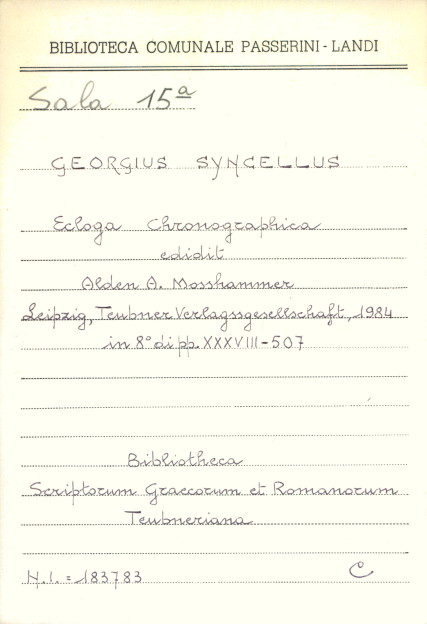 BIBLIOTECA COMUNALE PASSERINI - LANDI
Sala 15ª
GEORGIUS SYNCELLUS
Ecloga Chronographica
edidit
Alden A. Mosshammer
Leipzig, Teubner Verlagsgesellschaft, 1984
in 8° di pp. XXXVIII-507
Bibliotheca
Scriptorum Graecorum et Romanorum
Teubneriana
N.I. = 183783 C